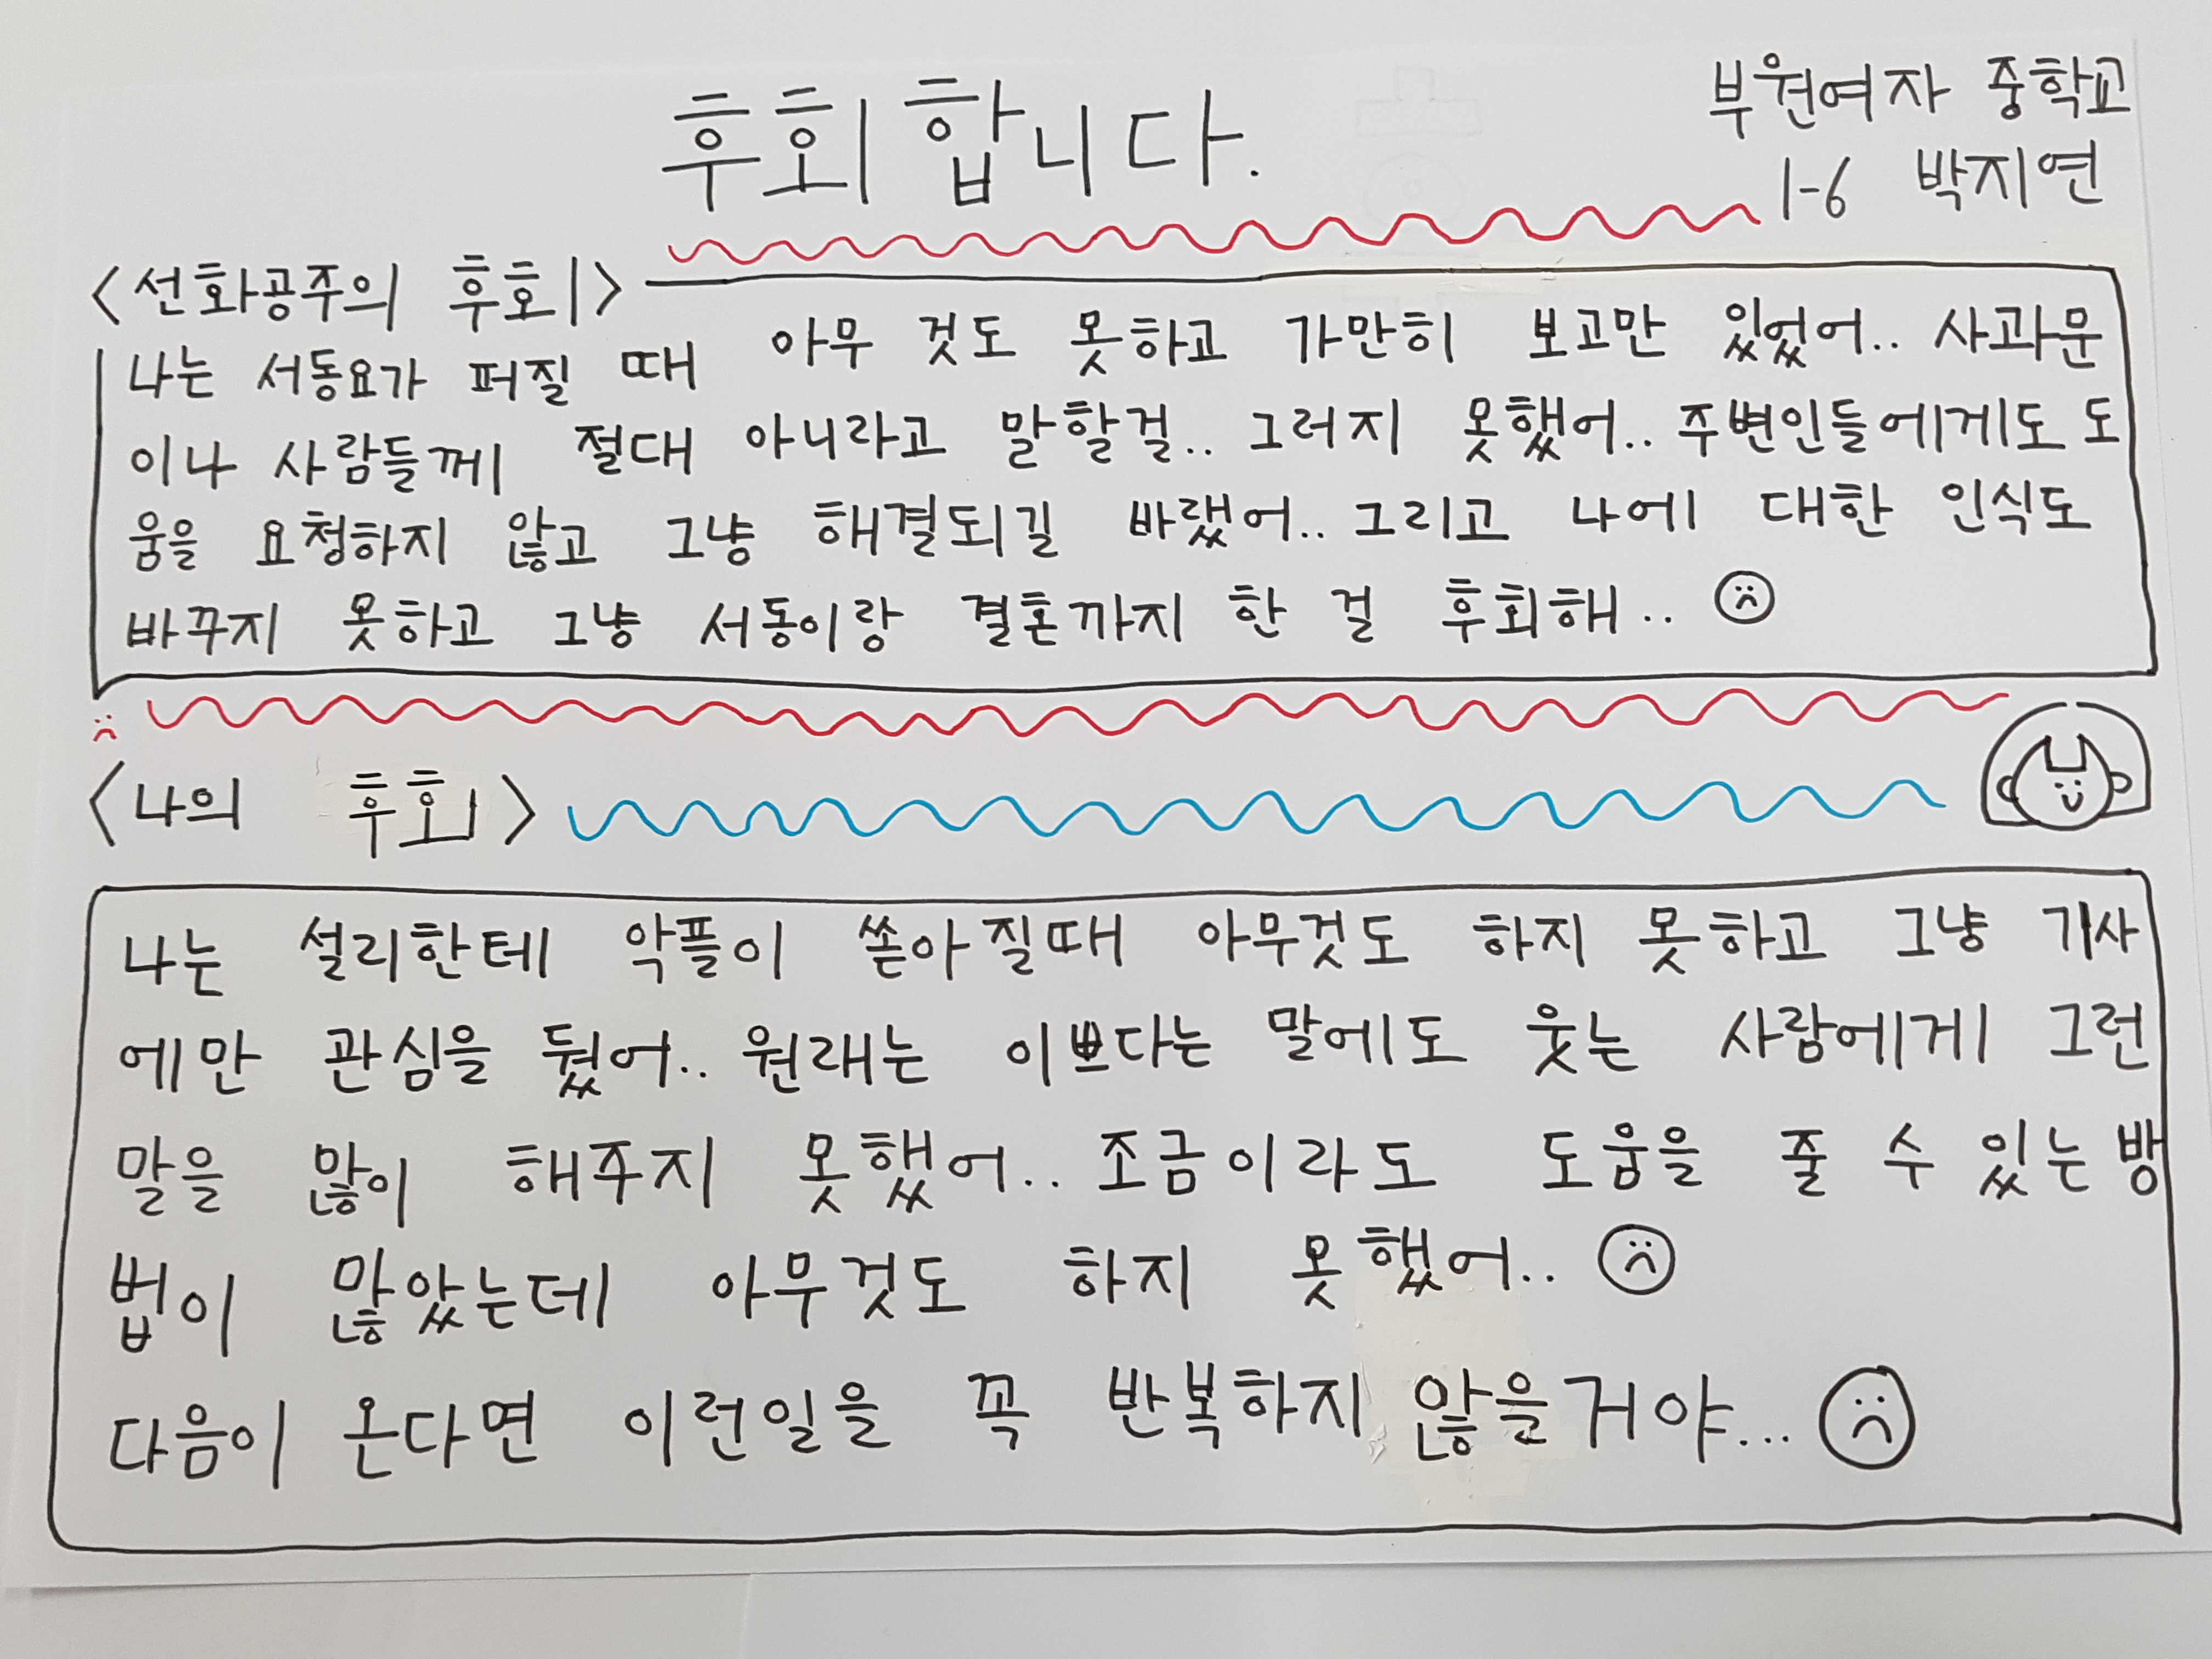 후회합니다.
부원여자 중학교
1-6 박지연
<선화공주의 후회>
나는 서동요가 퍼질 때 아무 것도 못하고 가만히 보고만 있었어.. 사과문
이나 사람들께 절대 아니라고 말할걸.. 그러지 못했어.. 주변인들에게도 도
움을 요청하지 않고 그냥 해결되길 바랬어.. 그리고 나에 대한 인식도
바꾸지 못하고 그냥 서동이랑 결혼까지 한 걸 후회해..
<나의 후회>
나는 설리한테 악플이 쏟아질때 아무것도 하지 못하고 그냥 기사
에만 관심을 뒀어.. 원래는 이쁘다는 말에도 웃는 사람에게 그런
말을 많이 해주지 못했어.. 조금이라도 도움을 줄 수 있는 방
법이 많았는데 아무것도 하지 못했어..
다음이 온다면 이런일을 꼭 반복하지 않을거야...